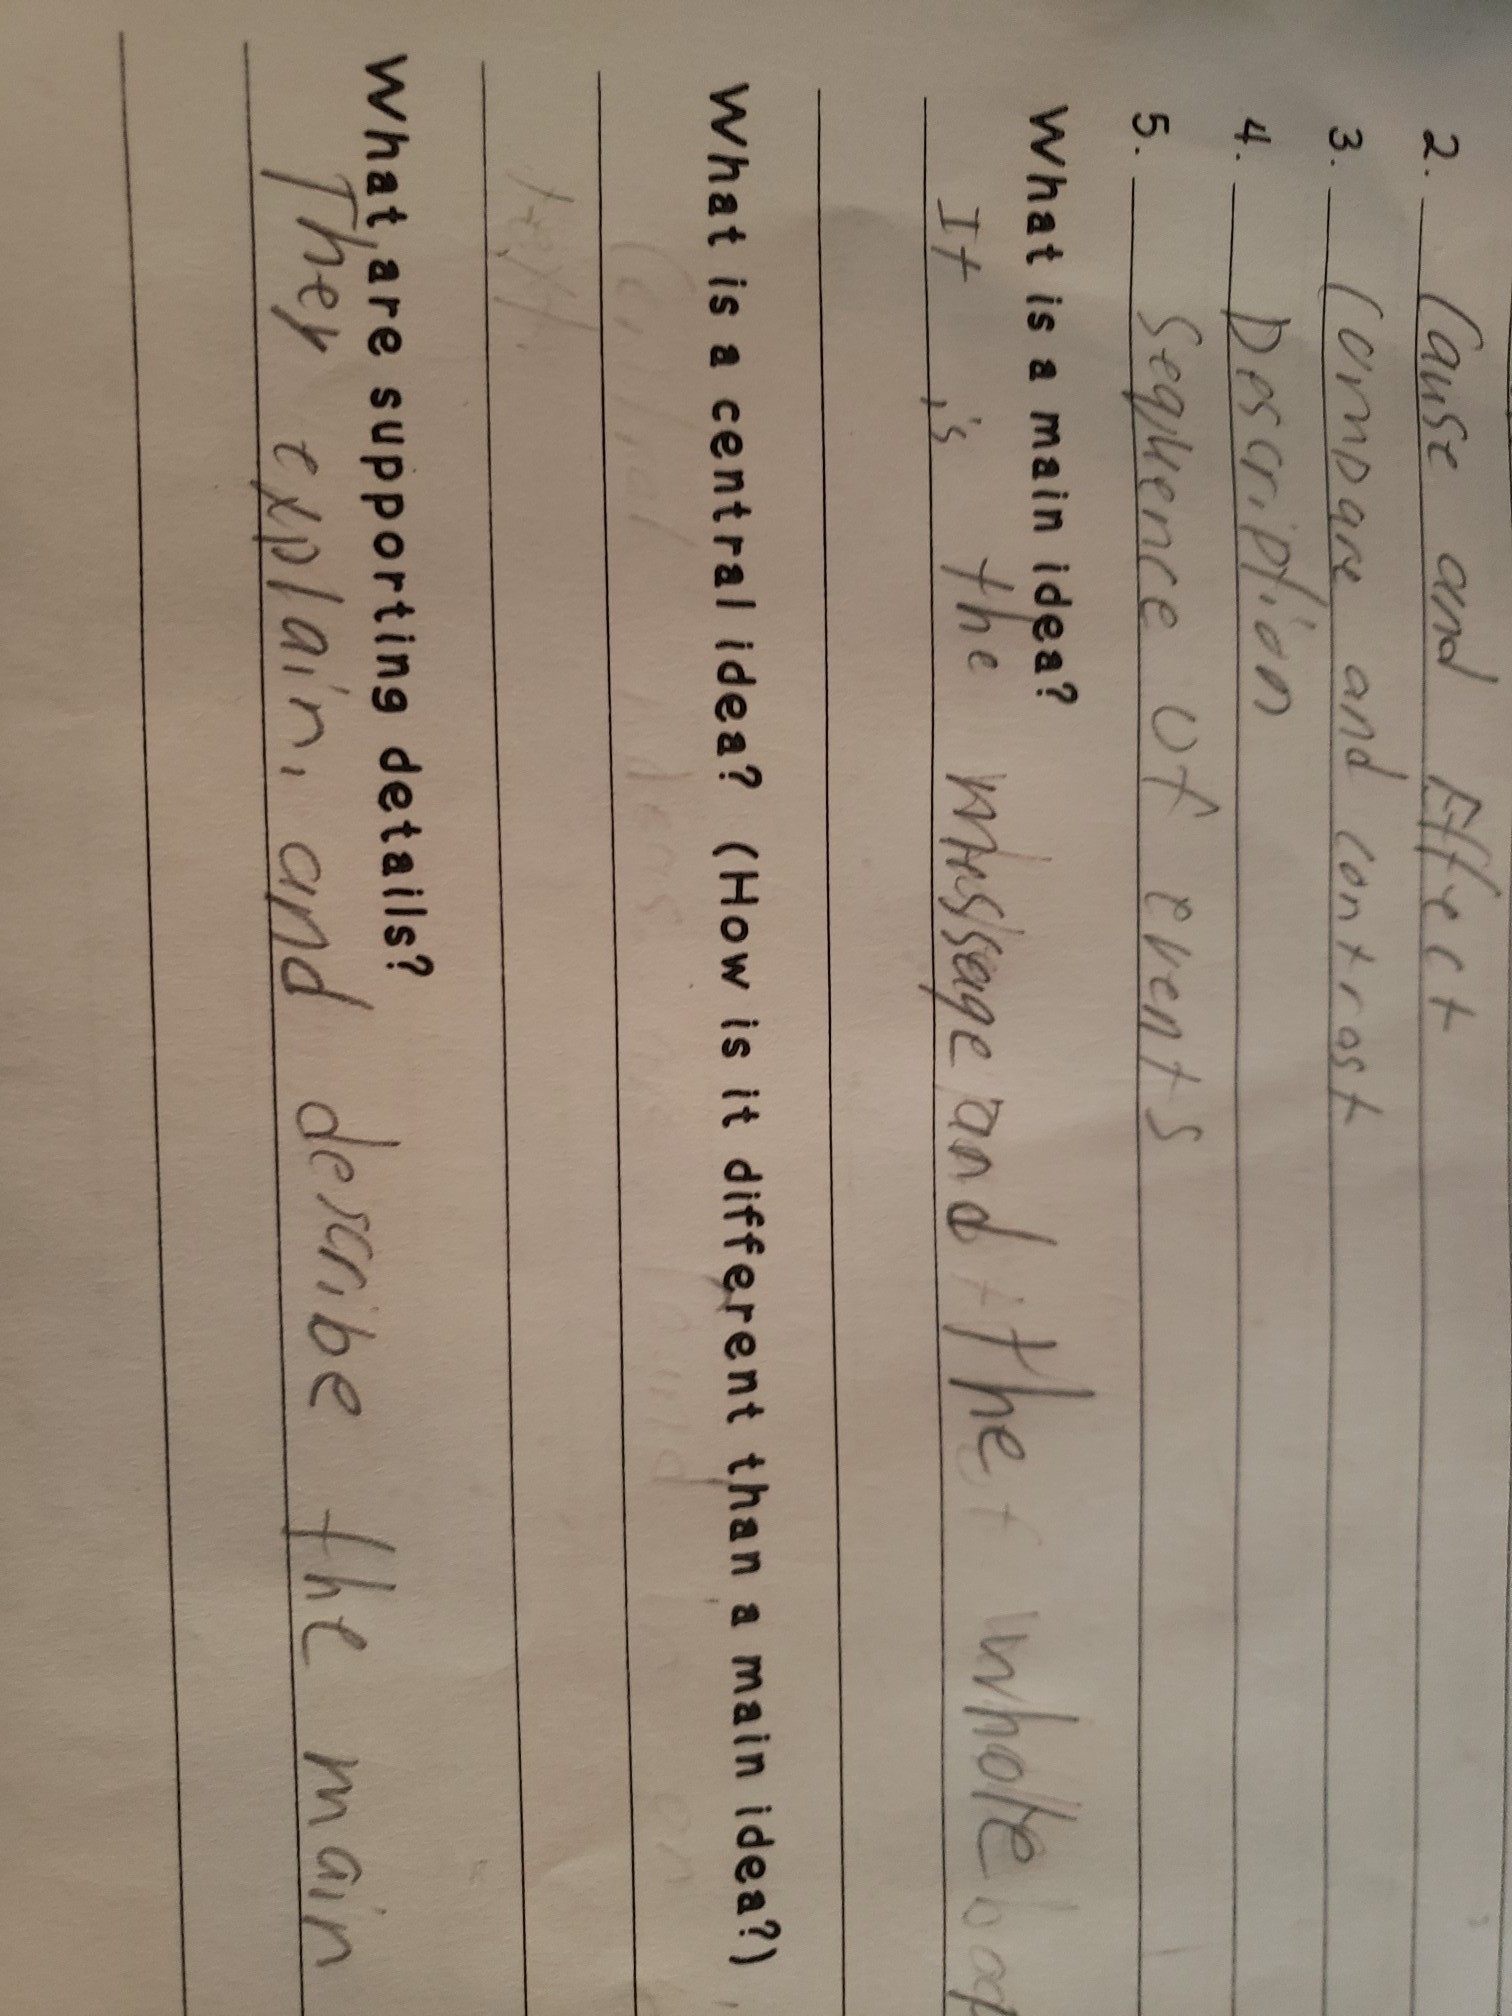 2. Cause and Effect
3. Compare and contrast
4. Description
5. Sequence of events
What is a main idea?
It is the message and the whole
What is a central idea? (How is it different than a main idea?)
Central ideas are found on
text.
What are supporting details?
They explain, and describe the main